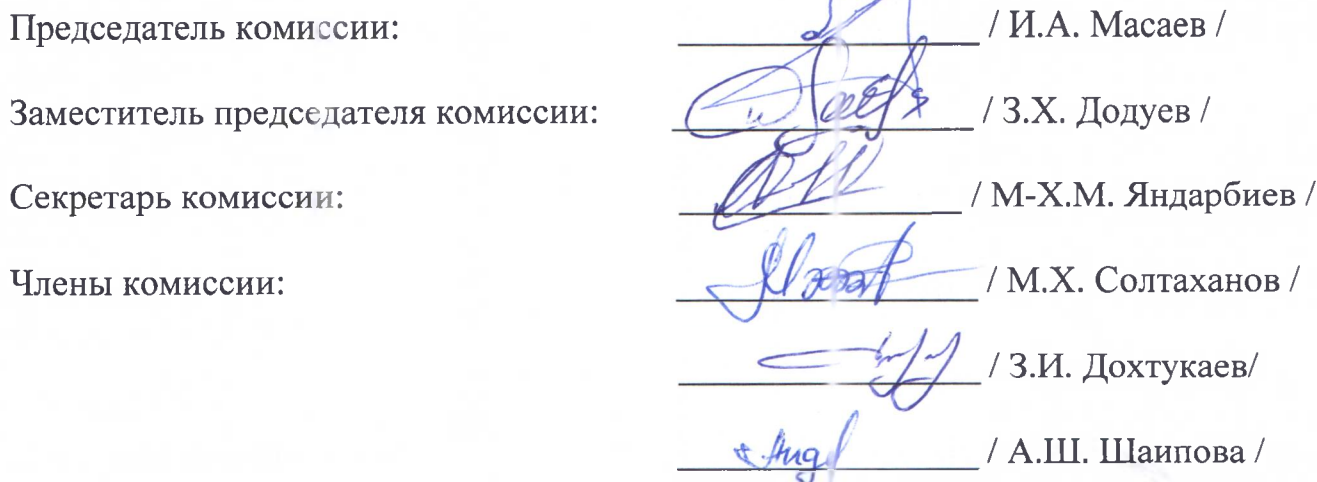 Председатель комиссии: / И.А. Масаев /
Заместитель председателя комиссии: / З.Х. Додуев /
Секретарь комиссии: / М-Х.М. Яндарбиев /
Члены комиссии: / М.Х. Солтаханов /
/ З.И. Дохтукаев/
/ А.Ш. Шаипова /